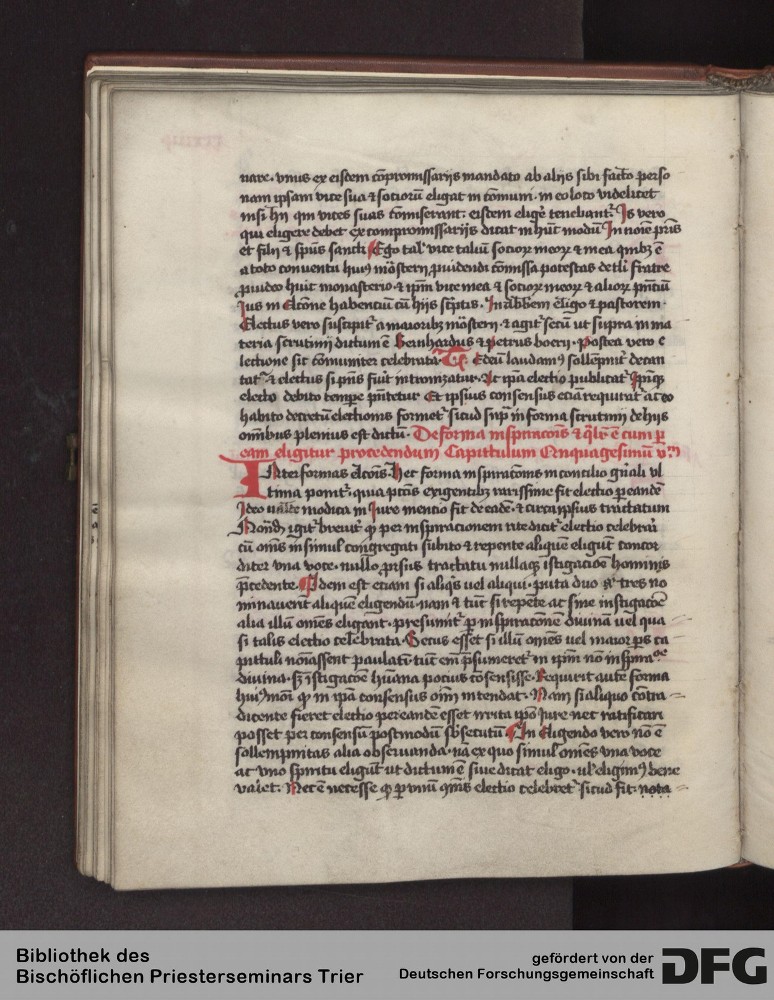 nare. vnus ex eisdem cōpromissarijs mandato ab alijs sibi facto perso
nam ipsam vice sua & sociorū eligat in cōmuni. in eo loco videlicet
nisi hij qui vices suas cōmiserant: eisdem eligē tenebant᷑. Is vero
qui eligere debet ex compromissarijs dicat in hūc modū In noīe pr̄is
et filij & sp̄us sancti Ego tal᷑ vice taliū socior̄ meor̄ & mea quibȝ ē
a toto conventu hui⁹ mōsterij ꝓuidendi cōmissa potestas de tli fratre
ꝓuideo huic monasterio. & ip̄m vice mea & socior̄ meor̄ & alior̄ om̄iū
Ius in Elcōne habenciū cū hijs sc̄ptis. In abbem eligo & pastorem.
Electus vero suscipit᷑ a maioribȝ mōsterij. & agit᷑ secū ut supra in ma
teria scrutinij dictum ē Bernhardus & petrus boerij. Postea vero e
lectione sic cōmuniter celebrata. Te Deū laudam⁹ sollempnit᷑ decan
tat᷑. & electus si p̄ns fūit intronizatur. Et ip̄a electio publicat᷑ Ip̄iq;
electio debito tempe p̄ntetur Et ipsius consensus eciā requirat᷑ ac eo
habito decretū electionis formet᷑ sicud sup̄ in forma scrutinij de hijs
omībus plenius est dictū. De forma inspiracōis & qlr̄ ē cum ꝑ
eam eligitur procedendum Capittulum Quīquagesimū v̄m
Inter formas elcōis. Hec forma inspiracōnis in concilio gn̄ali vl
tima ponit᷑. quia pctīs exigentibȝ rarissime fit electio ꝑ eandē
Ideo valde modica in Iure mencio fit de eadē. & circa ip̄sius tractatum
Nōnd; igit᷑ breuit᷑ ꝙ per inspiracionem rite dicit᷑ electio celebrar̄
cū om̄s in simul congregati subito & repente aliquē eligūt concor
diter vna voce. nullo ꝓrsus tractatu nullaq; īstigacioē hominis
p̄cedente. Idem est etiam si aliq̄s uel aliqui. puta duo ac tres no
minauerit aliquē eligendū. nam & tūc si repēte ac sine instigacōe
alia illū om̄es eligant. presumit᷑ ꝑ inspiracōnē diuinā uel qua
si talis electio celebrata. Secus esset si illū om̄es uel maior ꝑs ca
pittuli nōiassent paulatī. tūc em̄ p̄sumeret᷑ in ip̄m nō inspīra⁰ᵉ
diuina. sȝ īstigacōe hūana pocius cōsensisse. Requirit autē forma
hui⁹mōi ꝙ in ip̄a consensus oīm intendat. Nam si aliquo cōtra
dicente fieret electio per eandē esset irrita ip̄o Iure nec ratificari
posset per consensū postmodū sb̄secutū In Eligendo vero nō ē
sollempnitas alia obseruanda. nā ex quo simul om̄es vna voce
ac vno spiritu eligūt ut dictum ē siue dicat eligo. ul᷑ eligim⁹ bene
valet. Nec ē necesse ꝙ ꝑ vnū om̄s electio celebret᷑ sicud fit. nota
Bibliothek des
Bischöflichen Priesterseminars Trier
gefördert von der
Deutschen Forschungsgemeinschaft
DFG